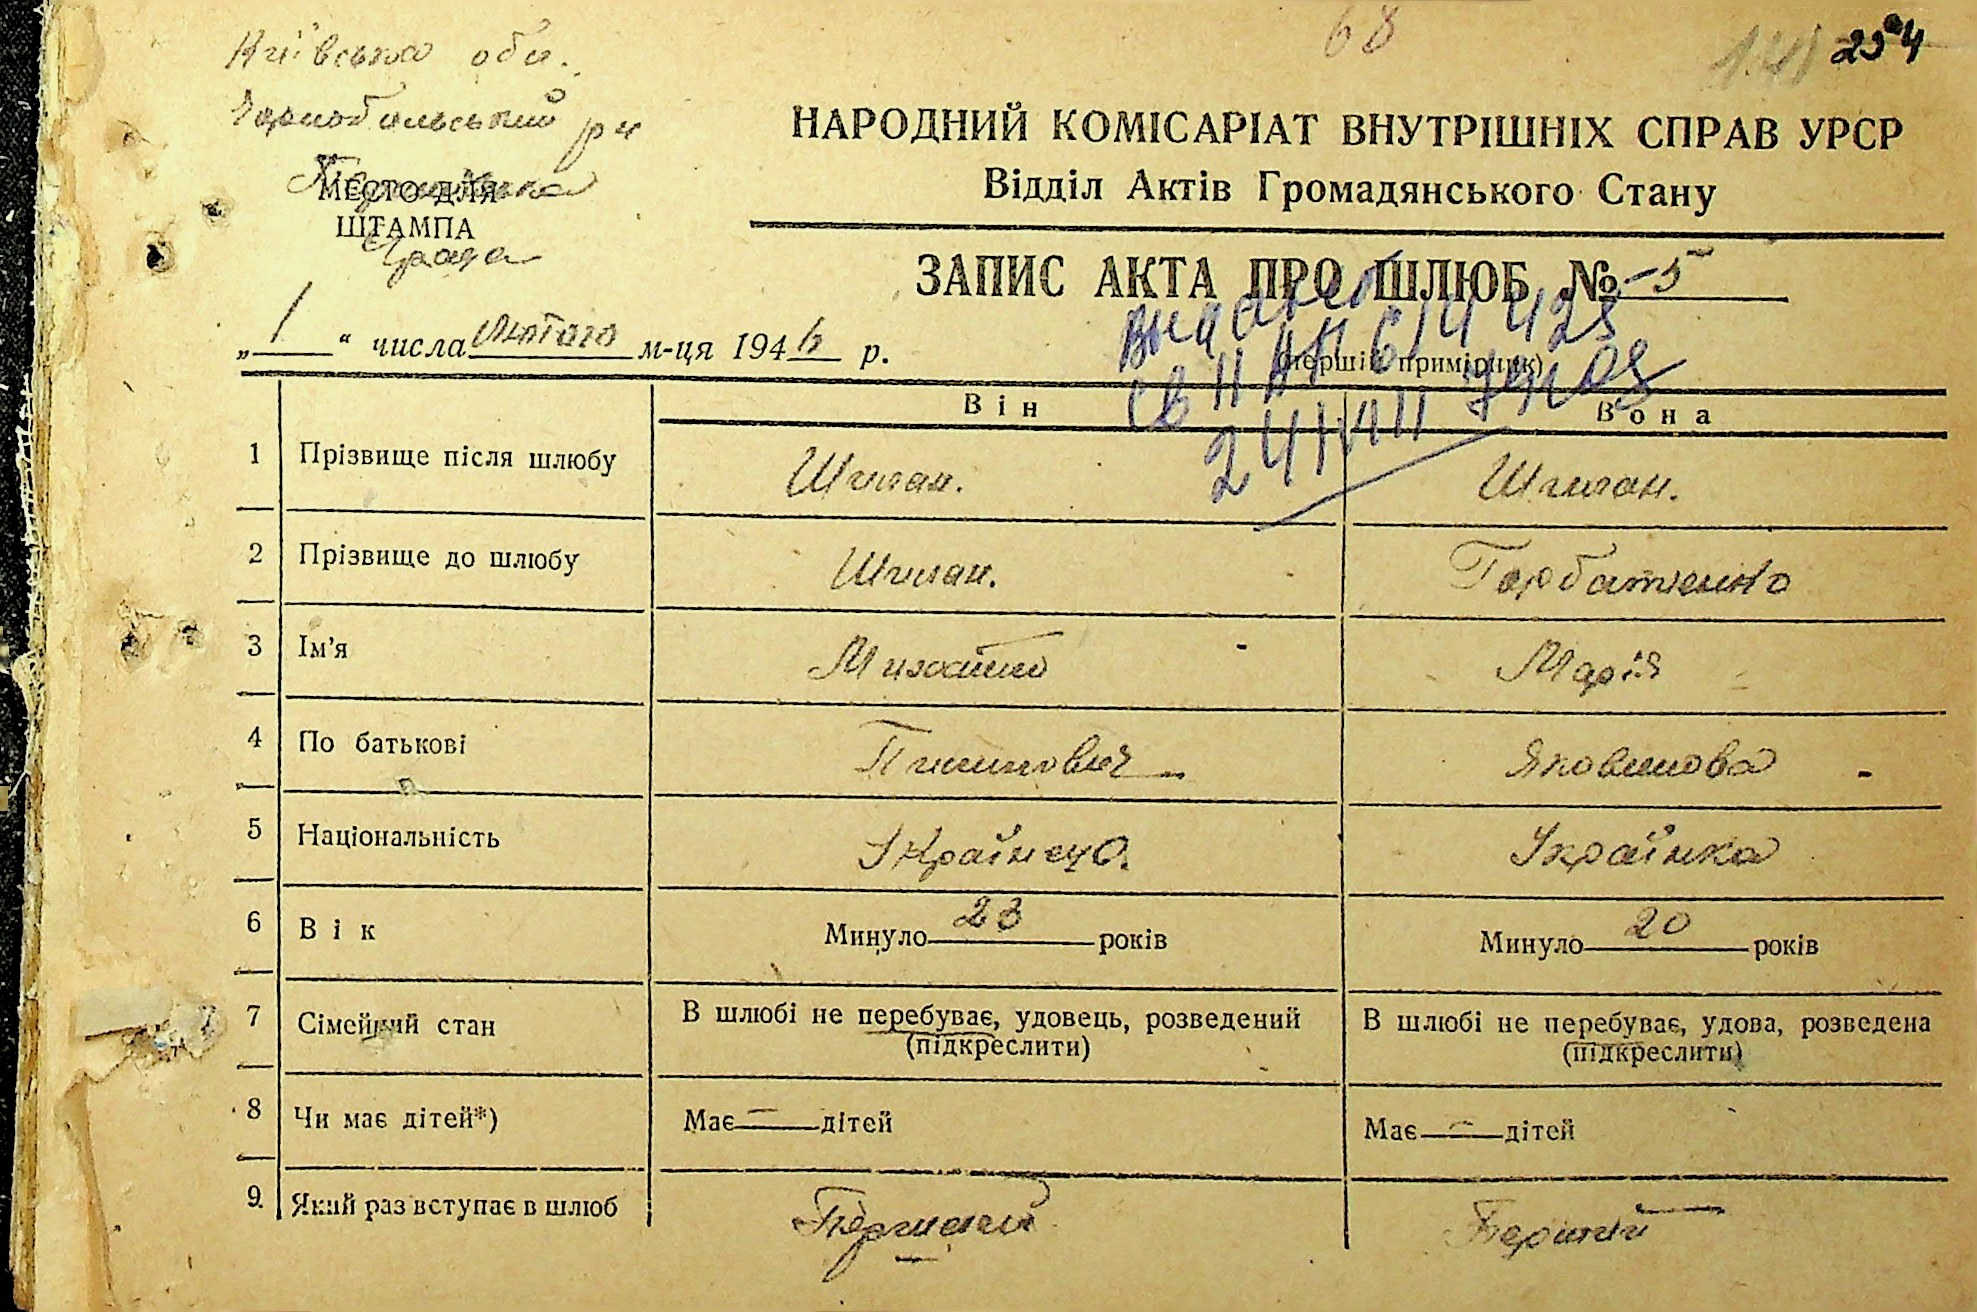 68
234
Київська обл.
Чорнобильський р-н
МЕСТО ДЛЯ
ШТАМПА
НАРОДНИЙ КОМІСАРІАТ ВНУТРІШНІХ СПРАВ УРСР
Відділ Актів Громадянського Стану
ЗАПИС АКТА ПРО ШЛЮБ №-5
„1“ числа Лютого м-ця 1946 р.
(перший примірник)
Він
Вона
1 Прізвище після шлюбу Шиган. Шиган.
2 Прізвище до шлюбу Шиган. Горбатенко
3 Ім'я Михайло Марія
4 По батькові Пилипович Яковлівна
5 Національність Українец Українка
6 Вік Минуло 23 років Минуло 20 років
7 Сімейний стан В шлюбі не перебуває, удовець, розведений В шлюбі не перебуває, удова, розведена
(підкреслити) (підкреслити)
8 Чи має дітей*) Має — дітей Має — дітей
9. Який раз вступає в шлюб Перший Перший